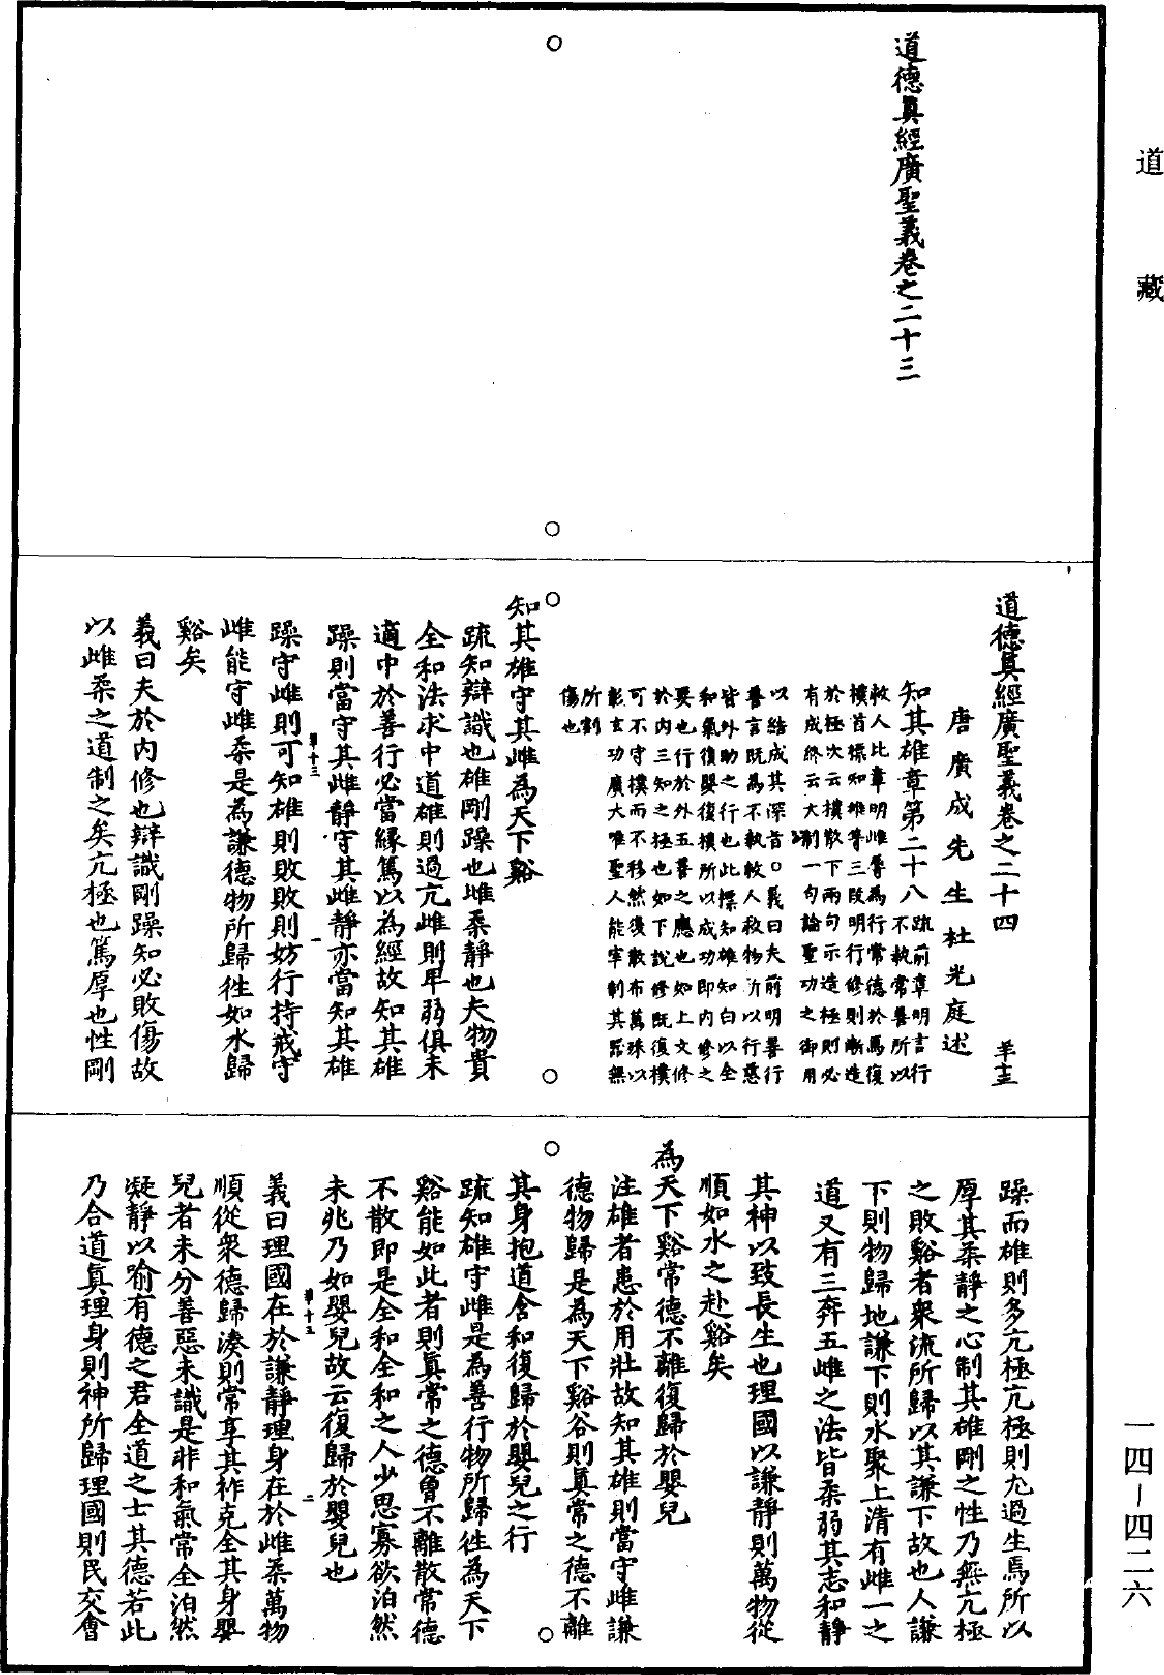 道藏
道德真經廣聖義卷之二十三
道德真經廣聖義卷之二十四　羊十三
唐廣成先生杜光庭述
知其雄章第二十八
疏前章明言行
不執常善所以
救人此章明雌辱為行常德於焉復
樸首標知雄等三段明行修則漸造
於極次云樸散下兩句示造極則必
有成終云大制一句論聖功之御用
以結成其深旨○義曰夫前明善行
善言既為不執救人救物所以行慈
皆外助之行也此標知雄知白以全
和氣復嬰復樸所以成功即內修之
要也行於外五善之應也如上文修
於內三知之極也如下說修既復樸
可不守樸而不移然後散布萬殊以
彰玄功廣大唯聖人能宰制其器無
所割
傷也
知其雄守其雌為天下谿
疏知辯識也雄剛躁也雌柔靜也夫物貴
全和法求中道雄則過亢雌則卑弱俱未
適中於善行必當緣篤以為經故知其雄
躁則當守其雌靜守其雌靜亦當知其雄
躁守雌則可知雄則敗敗則妨行持戒守
雌能守雌柔是為謙德物所歸往如水歸
谿矣
義曰夫於內修也辯識剛躁知必敗傷故
以雌柔之道制之矣亢極也篤厚也性剛
躁而雄則多亢極亢極則尤過生焉所以
厚其柔靜之心制其雄剛之性乃無亢極
之敗谿者眾流所歸以其謙下故也人謙
下則物歸地謙下則水聚上清有雌一之
道又有三奔五雌之法皆柔弱其志和靜
其神以致長生也理國以謙靜則萬物從
順如水之赴谿矣
為天下谿常德不離復歸於嬰兒
注雄者患於用壯故知其雄則當守雌謙
德物歸是為天下谿谷則真常之德不離
其身抱道含和復歸於嬰兒之行
疏知雄守雌是為善行物所歸往為天下
谿能如此者則真常之德曾不離散常德
不散即是全和全和之人少思寡欲泊然
未兆乃如嬰兒故云復歸於嬰兒也
義曰理國在於謙靜理身在於雌柔萬物
順從眾德歸湊則常享其祚克全其身嬰
兒者未分善惡未識是非和氣常全泊然
凝靜以喻有德之君全道之士其德若此
乃合道真理身則神所歸理國則民交會
一四－四二六